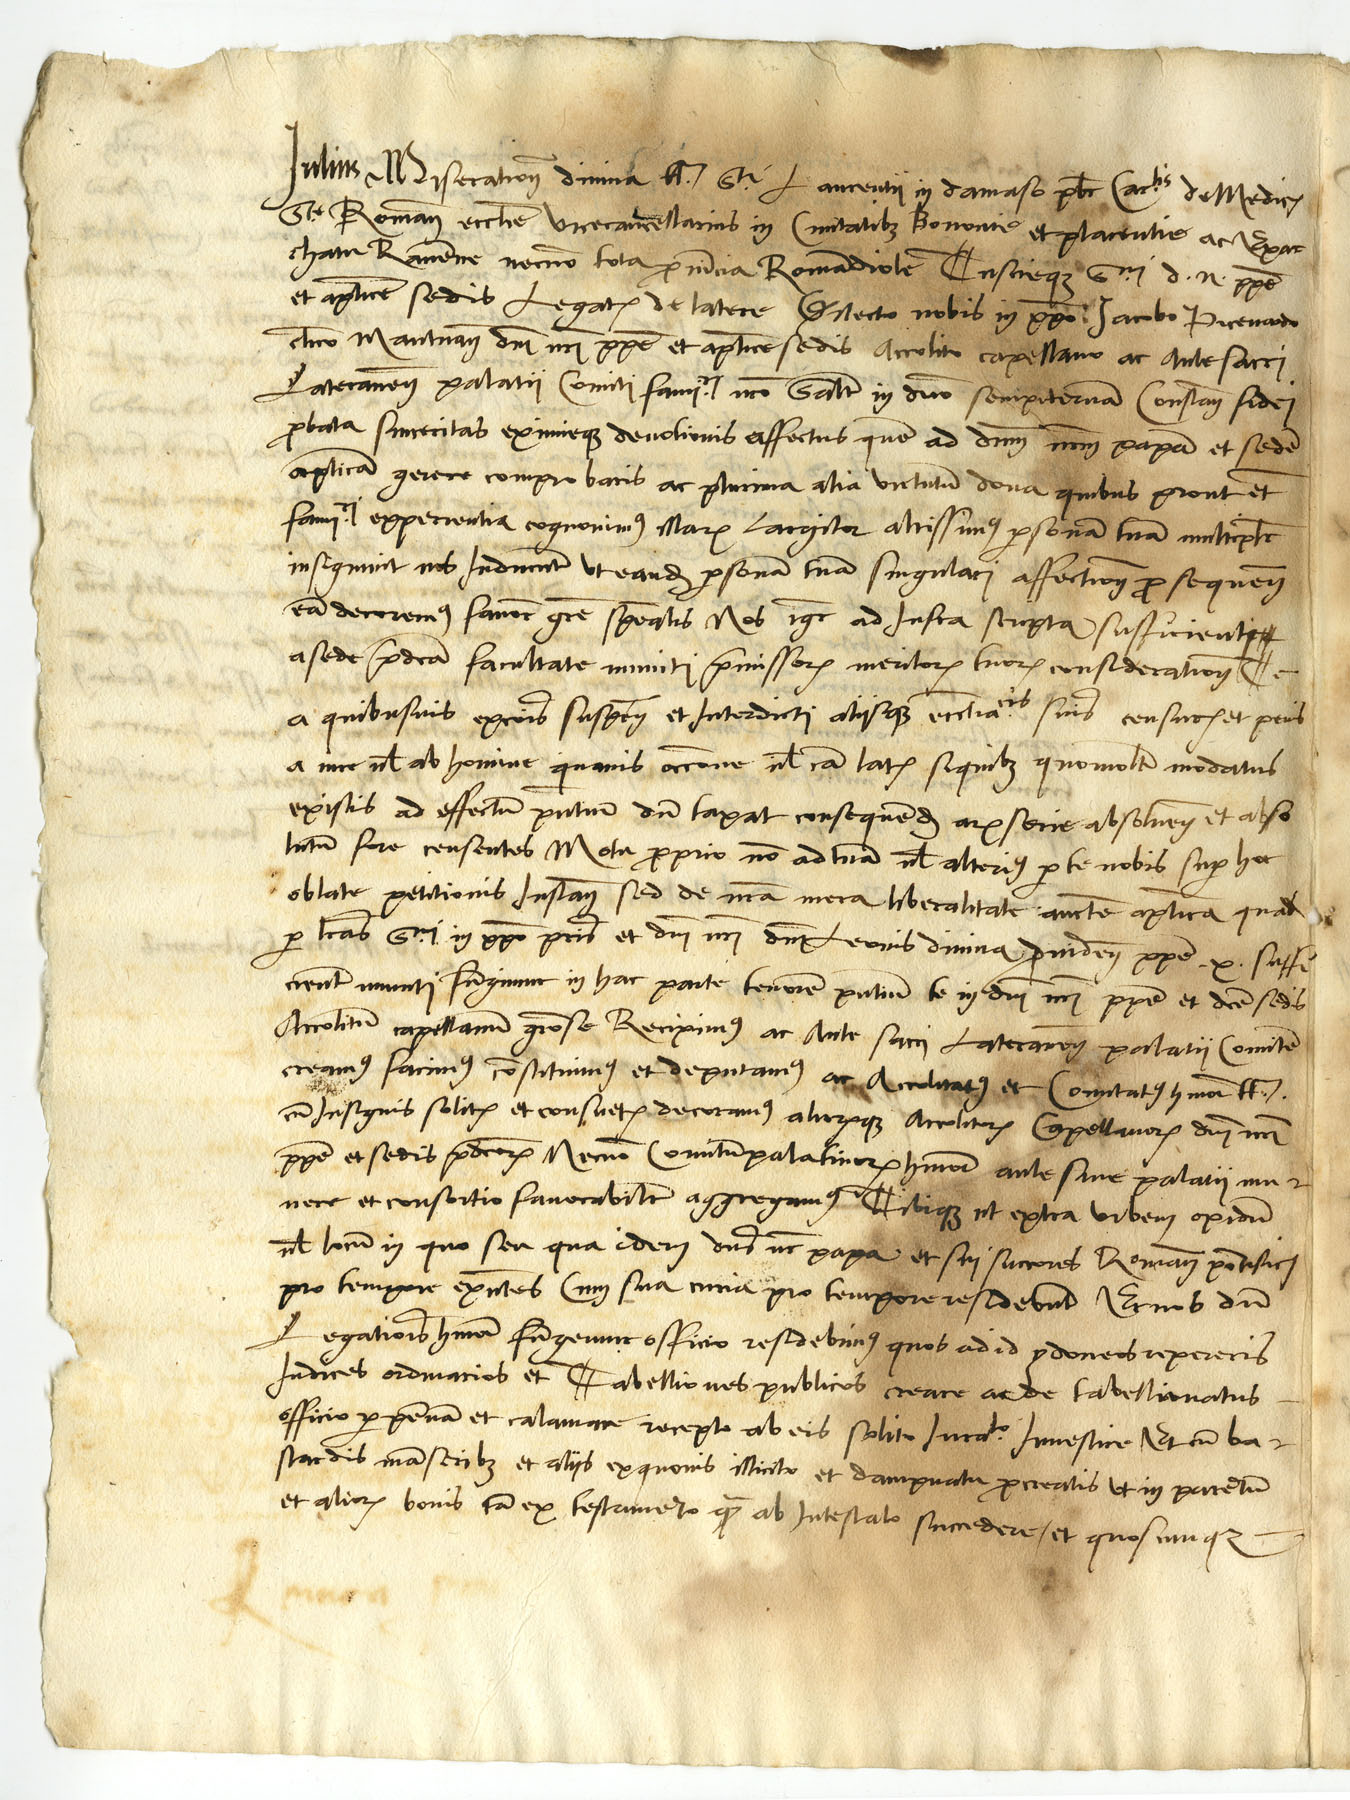 Julius Miseration͂ divina tt. Sti Laurentii in damaso pb͂r Carlis de Medicis
Ste Roman͂ eccl͂ie vicecancellarius in Civitatib; Bononie et placentie ac Exar
chatu Ravenne necno͂ tota p͂vincia Romandiole Tuscieq; Smi d. n. pp͂e
et ap͂lice sedis Legat͂ de latere Dilecto nobis in xp͂o Jacobo Picenardo
cl͂ico Mantuan͂ dn͂i nr͂i pp͂e et ap͂lice sedis Accolito capellano ac Aule sacri
Lateranen͂ palatii Comiti famri nr͂o Salt͂ in dn͂o sempiterna͂ Constan͂ fidei
p͂bata sinceritas eximieq; devotionis affectus que͂ ad dn͂um nr͂um papa͂ et sede͂
ap͂lica͂ gerere comprobaris ac plurima alia virtutu͂ dona quibus prout et
famri experientia cognovim9 illar͂ Largitor altissim9 persona͂ tua͂ multiplr͂
insignivit nos Inducunt ut eand͂ persona͂ tua͂ singulari affection͂ p͂sequen͂
ea͂ decorem9 favor͂ gr͂e sp͂ealis Nos igr͂ ad Infra scripta sufficienti
a sede p͂dca͂ facultate muniti p͂missor͂ meritor͂ tuor͂ consideration͂ Te
a quibusvis exco͂is suspen͂ et Interdicti aliisq; eccl͂iacis sn͂iis censur͂ et penis
a iure vl͂ ab homine quavis occ͂one vl͂ ca͂ latis siquib; quomolt͂ inodatus
existis ad effectu͂ p͂ntium du͂ taxat consequend͂ ar͂ serie absolven͂ et abso
lutum fore censentes Motu p͂prio no͂ ad tua͂ vl͂ alteri9 p te nobis sup hoc
oblate petitionis Instan͂ sed de nr͂a mera liberalitate auct͂e ap͂lica qua
p lr͂as Smi in xp͂o pr͂is et dn͂i nr͂i dn͂i Leonis divina p͂viden͂ pp͂e x. suffi
cient͂ muniti fungimur in hac parte tenore͂ p͂ntium te in dn͂i nr͂i pp͂e et dc͂e sedis
Accolitu͂ capellanum gr͂ose Recipim9 ac Aule sacri Lateranen͂ palatii Comite͂
cream9 facim9 co͂stituim9 et deputam9 ac Accolitat9 et Comitat9 hmo͂i tt.
cu͂ Insigniis solit͂ et consuet͂ decoram9 alior͂q; Accolitor͂ Capellanor͂ dn͂i nr͂i
pp͂e et sedis p͂dcor͂ Necno͂ Comitum palatinor͂ hmo͂i aule sive palatii nu-
mero et consortio favorabilr͂ aggregam9 Tibiq; vt extra urbem opidu͂
vl͂ locu͂ in quo seu qua idem dn͂s nr͂ papa et sui succ͂ores Roman͂ pontifices
pro tempore exn͂tes Cum sua curia pro tempore residebunt Et nos du͂
Legationis hmo͂i fungemur officio residebim9 quos ad id ydoneos repereris
Judices ordinarios et Tabelliones publicos creare ac de tabellionatus
officio p penna͂ et calamare recepto ab eis solito Juramto Investire Et cu͂ ba-
stardis manserib; et aliis ex quovis illicito et dampnatu p͂creatis vt in parentu͂
et alior͂ bonis ta͂ ex testamento q͂ ab Intestato succedere et quoscumq;